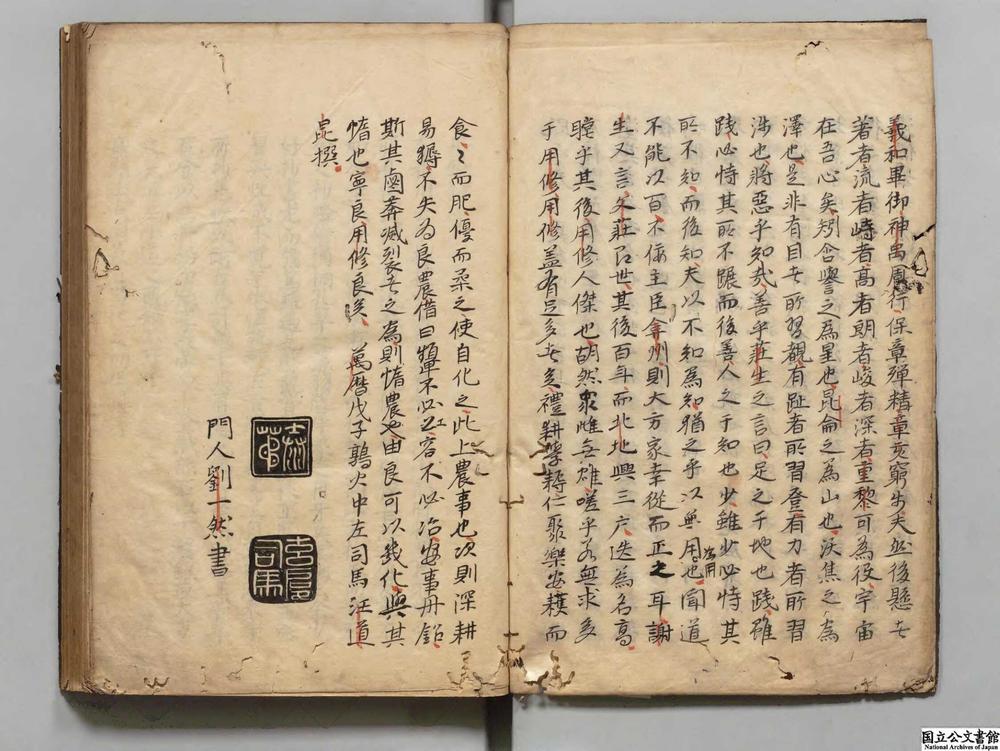 羲和畢御神禹周行保章殫精章亥窮步夫然後懸者
著者流者峙者高者朗者峻者深者重黎可為役宇宙
在吾心矣矧含譽之為星也昆侖之為山也沃焦之為
澤也是非有目者所習觀有趾者所習登有力者所習
涉也將惡乎知哉善乎莊生之言曰足之于地也踐雖
踐必恃其所不蹍而後善人之于知也少雖少必恃其
所不知而後知夫以不知為知猶之乎以無用為用也聞道
不能以百不佞主臣弇州則大方家幸從而正之耳謝
生又言父莊名世其後百年而北地興三戶迭為名高
瞠乎其後用修人傑也胡然眾雌無雄嗟乎若無求多
于用修用修蓋有足多者矣禮耕學耨仁聚樂安穫而
食之而肥優而柔之使自化之此上農事也次則深耕
易耨不失為良農借曰犨不必容不必冶安事丹鉛
斯其鹵莽滅裂者之為則惰農也由良可以幾化與其
惰也寧良用修良矣 萬曆戊子鶉火中左司馬汪道
昆撰
門人劉一然書
司馬